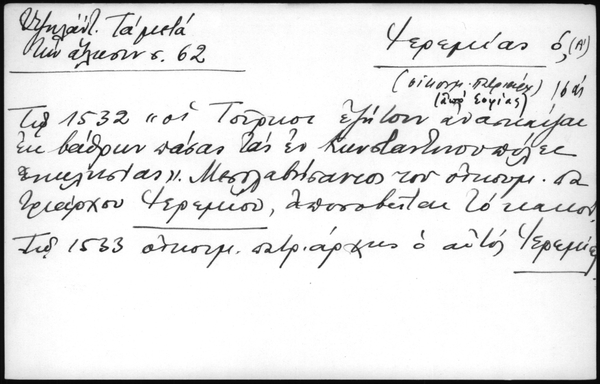 Ὑψηλάντ. Τά μετά
τήν ἅλωσιν σ. 62
Ἱερεμίας ὁ, (Α')
(οἰκουμ. πατριάρχ) 16 αἰ
(ἀπό Σοφίας)
Τῷ 1532 "οἱ Τοῦρκοι ἐζήτουν ἀνασκάψαι
ἐκ βάθρων πάσας τάς ἐν Κωνσταντινουπόλει
ἐκκλησίας". Μεσολαβήσαντος τοῦ οἰκουμ. πα
τριάρχου Ἱερεμίου, ἀποσοβεῖται τό κακόν.
Τῷ 1533 οἰκουμ. πατριάρχης ὁ αὐτός Ἱερεμίας